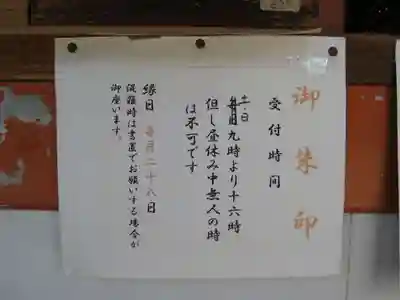 御朱印
受付時間
土・日
毎日九時より十六時
但し昼休み中無人の時
は不可です
縁日 毎月二十八日
混雑時は書置でお願いする場合が
御座います。